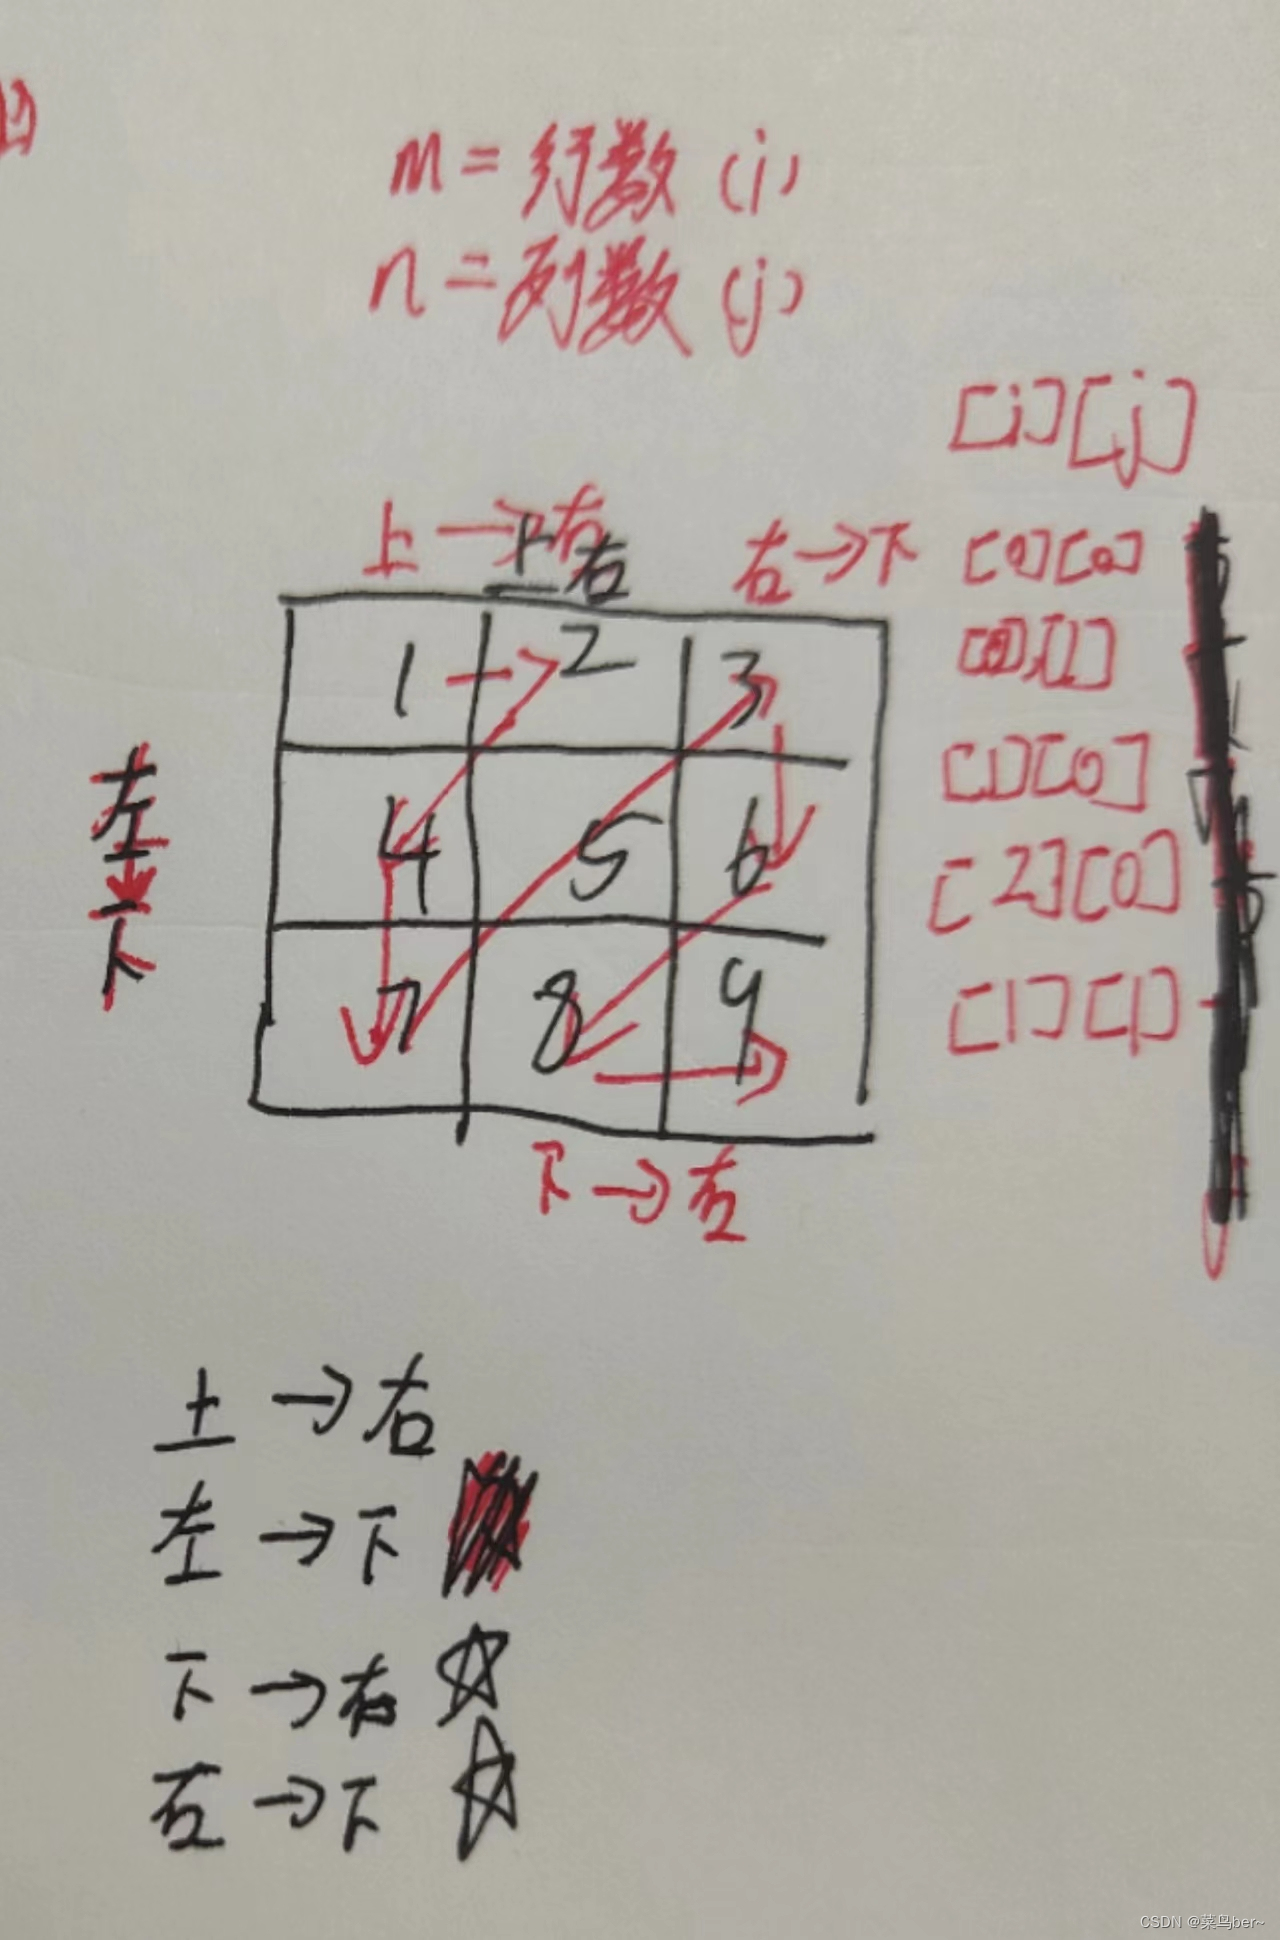 m = 行数 (i)
n = 列数 (j)
[i][j]
上 → 右
上右
右 → 下
[0][0]
[0][1]
[1][0]
[2][0]
[1][1]
1 2 3
4 5 6
7 8 9
左
↓
下
下 → 右
上 → 右
左 → 下
下 → 右 ☆
右 → 下 ☆
CSDN @菜鸟ber~